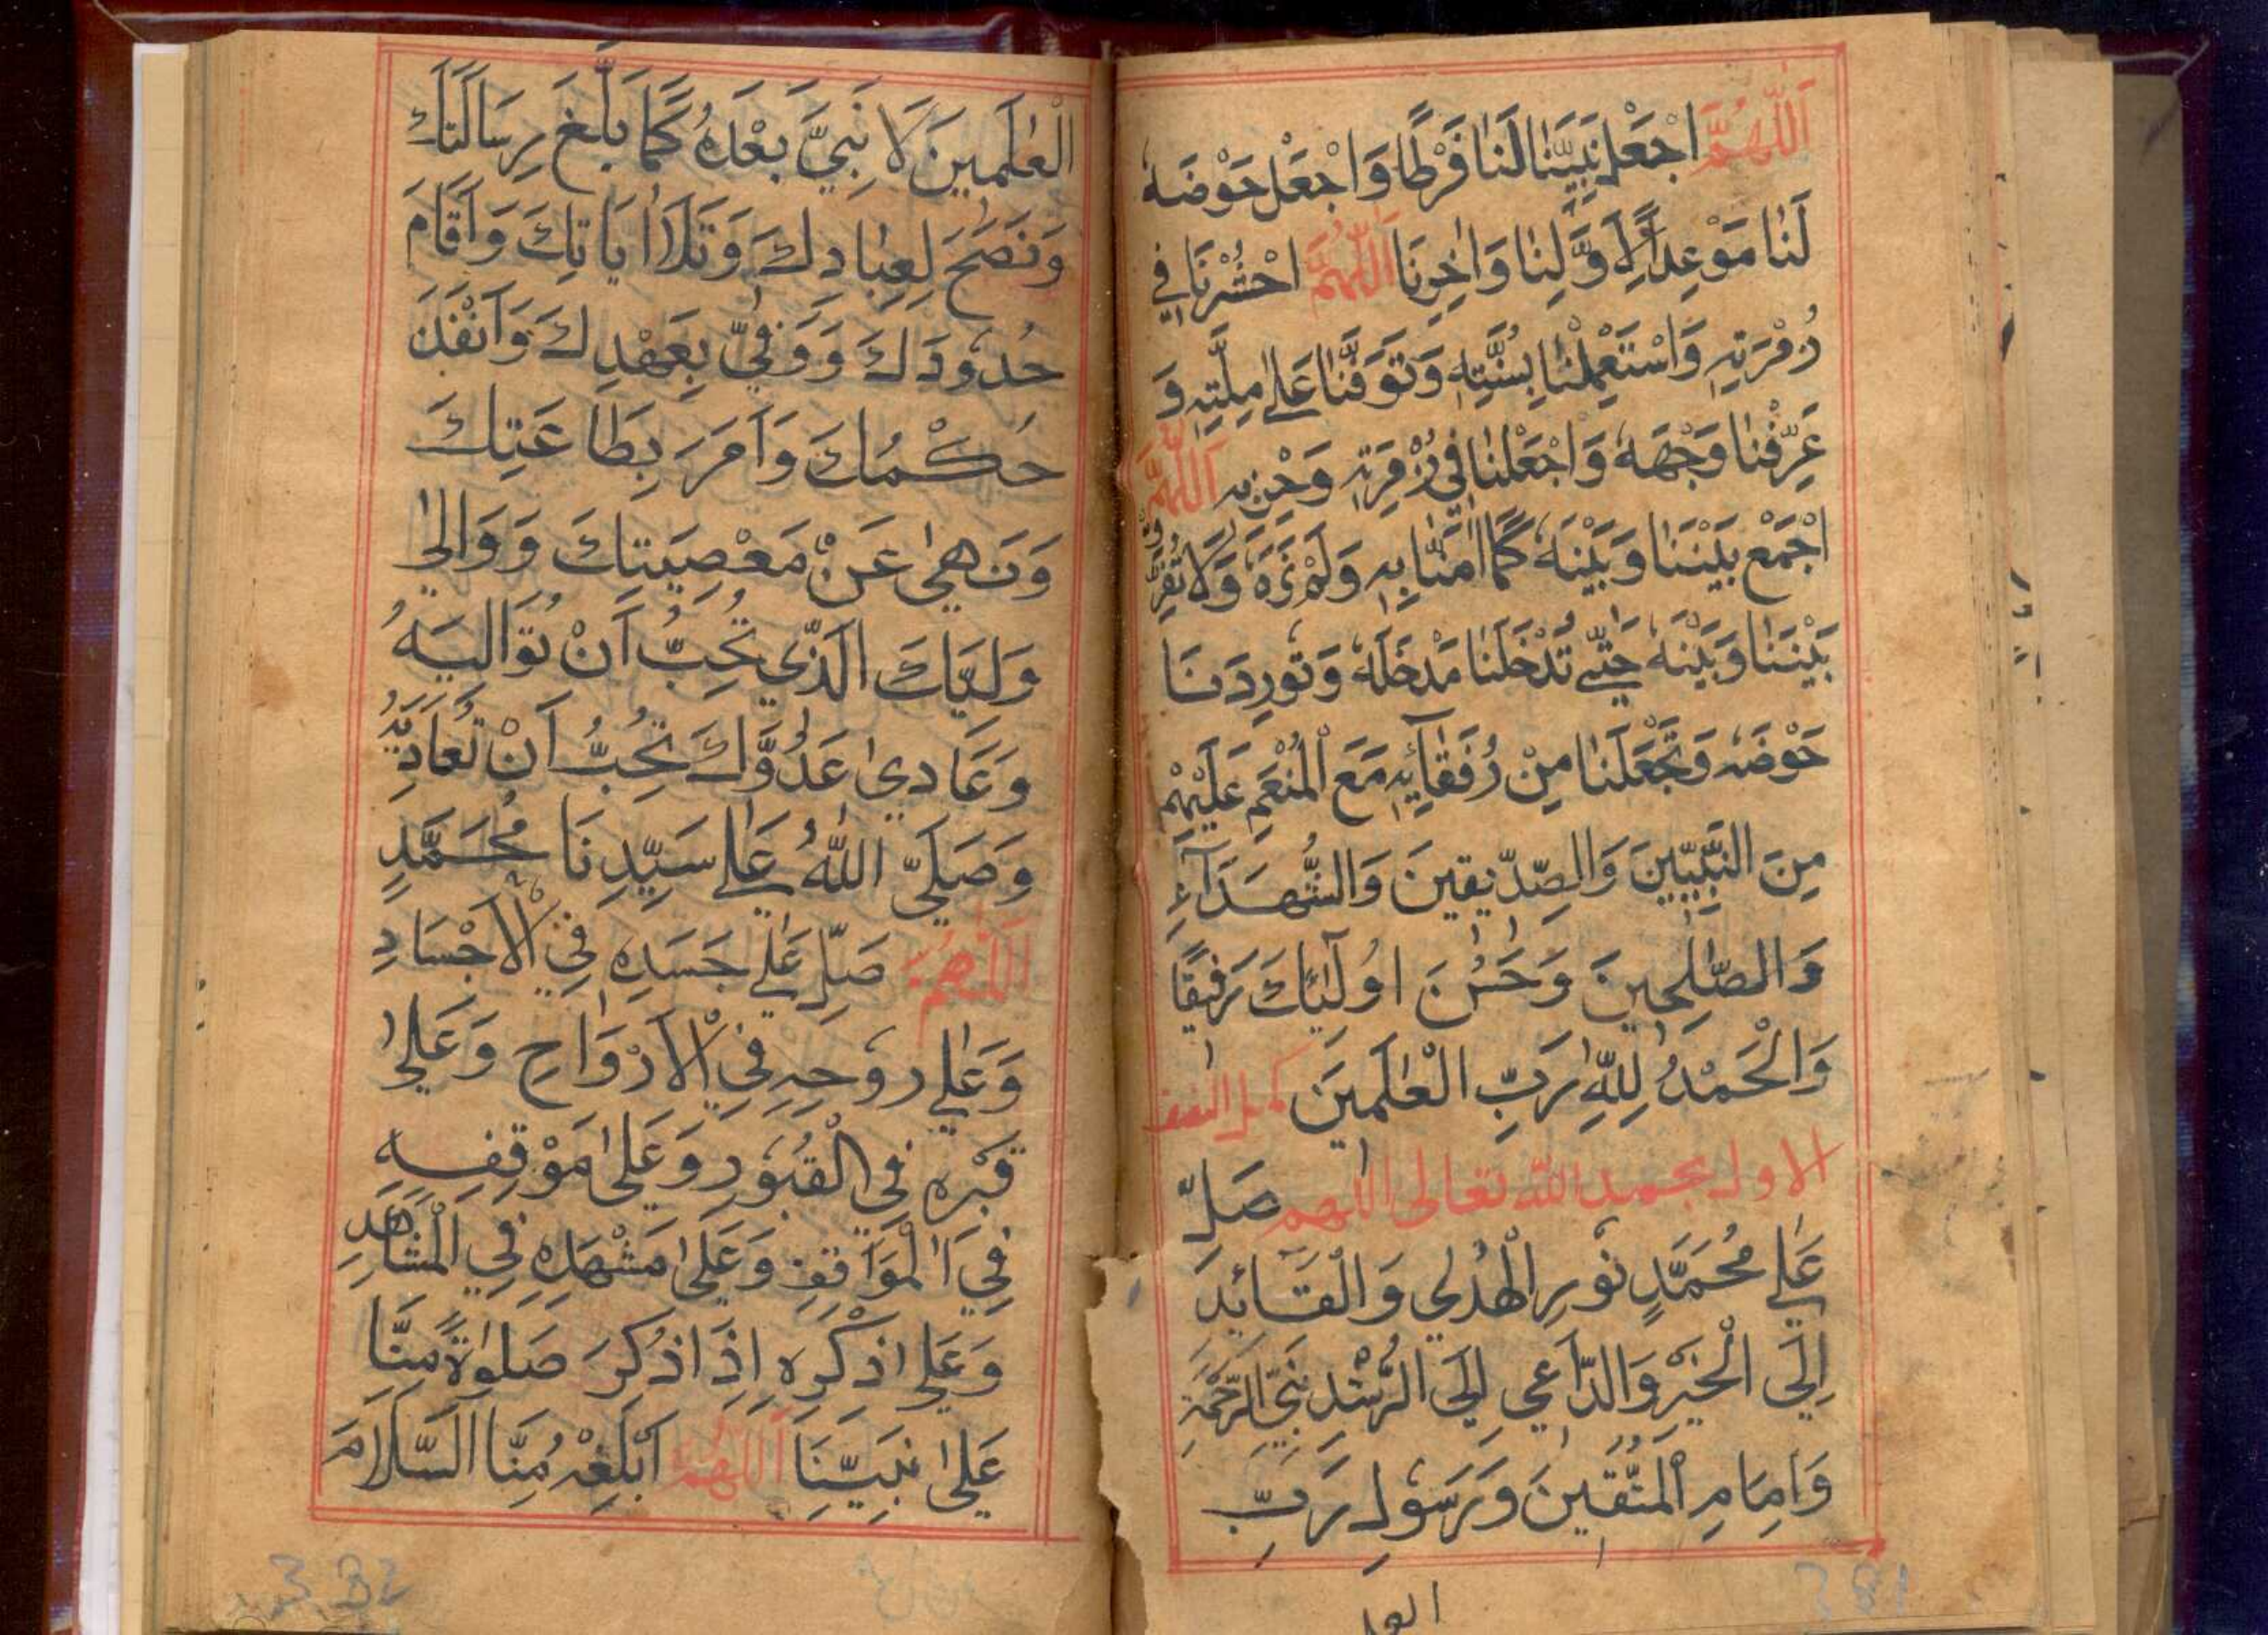 اَللّٰهُمَّ اجْعَلْ نَبِيَّنَا لَنَا فَرَطًا وَاجْعَلْ حَوْضَهٗ
لَنَا مَوْعِدًا لِاَوَّلِنَا وَاٰخِرِنَا اَللّٰهُمَّ احْشُرْنَا فِي
زُمْرَتِهٖ وَاسْتَعْمِلْنَا بِسُنَّتِهٖ وَتَوَفَّنَا عَلٰى مِلَّتِهٖ وَ
عَرِّفْنَا وَجْهَهٗ وَاجْعَلْنَا فِي زُمْرَتِهٖ وَحِزْبِهٖ اَللّٰهُمَّ
اجْمَعْ بَيْنَنَا وَبَيْنَهٗ كَمَا اٰمَنَّا بِهٖ وَلَمْ نَرَهٗ وَلَا تُفَرِّقْ
بَيْنَنَا وَبَيْنَهٗ حَتّٰى تُدْخِلَنَا مَدْخَلَهٗ وَتُورِدَنَا
حَوْضَهٗ وَتَجْعَلَنَا مِنْ رُفَقَآئِهٖ مَعَ الْمُنْعَمِ عَلَيْهِمْ
مِنَ النَّبِيِّينَ وَالصِّدِّيقِينَ وَالشُّهَدَآءِ
وَالصّٰلِحِينَ وَحَسُنَ اُولٰٓئِكَ رَفِيقًا
وَالْحَمْدُ لِلّٰهِ رَبِّ الْعٰلَمِينَ كمل النصف
الاول بحمد الله تعالى اللهم صَلِّ
عَلٰى مُحَمَّدٍ نُورِ الْهُدٰى وَالْقَآئِدِ
اِلَى الْخَيْرِ وَالدَّاعِي اِلَى الرُّشْدِ نَبِيِّ الرَّحْمَةِ
وَاِمَامِ الْمُتَّقِينَ وَرَسُولِ رَبِّ
العل
381
الْعٰلَمِينَ لَا نَبِيَّ بَعْدَهٗ كَمَا بَلَّغَ رِسَالَتَكَ
وَنَصَحَ لِعِبَادِكَ وَتَلَا اٰيَاتِكَ وَاَقَامَ
حُدُودَكَ وَوَفّٰى بِعَهْدِكَ وَاَنْفَذَ
حُكْمَكَ وَاَمَرَ بِطَاعَتِكَ
وَنَهٰى عَنْ مَعْصِيَتِكَ وَوَالٰى
وَلِيَّكَ الَّذِي تُحِبُّ اَنْ تُوَالِيَهُ
وَعَادٰى عَدُوَّكَ تُحِبُّ اَنْ تُعَادِيَهُ
وَصَلَّى اللّٰهُ عَلٰى سَيِّدِنَا مُحَمَّدٍ
اَللّٰهُمَّ صَلِّ عَلٰى جَسَدِهٖ فِي الْاَجْسَادِ
وَعَلٰى رُوحِهٖ فِي الْاَرْوَاحِ وَعَلٰى
قَبْرِهٖ فِي الْقُبُورِ وَعَلٰى مَوْقِفِهٖ
فِي الْمَوَاقِفِ وَعَلٰى مَشْهَدِهٖ فِي الْمَشَاهِدِ
وَعَلٰى ذِكْرِهٖ اِذَا ذُكِرَ صَلٰوةً مِنَّا
عَلٰى نَبِيِّنَا اَللّٰهُمَّ اَبْلِغْهُ مِنَّا السَّلَامَ
382